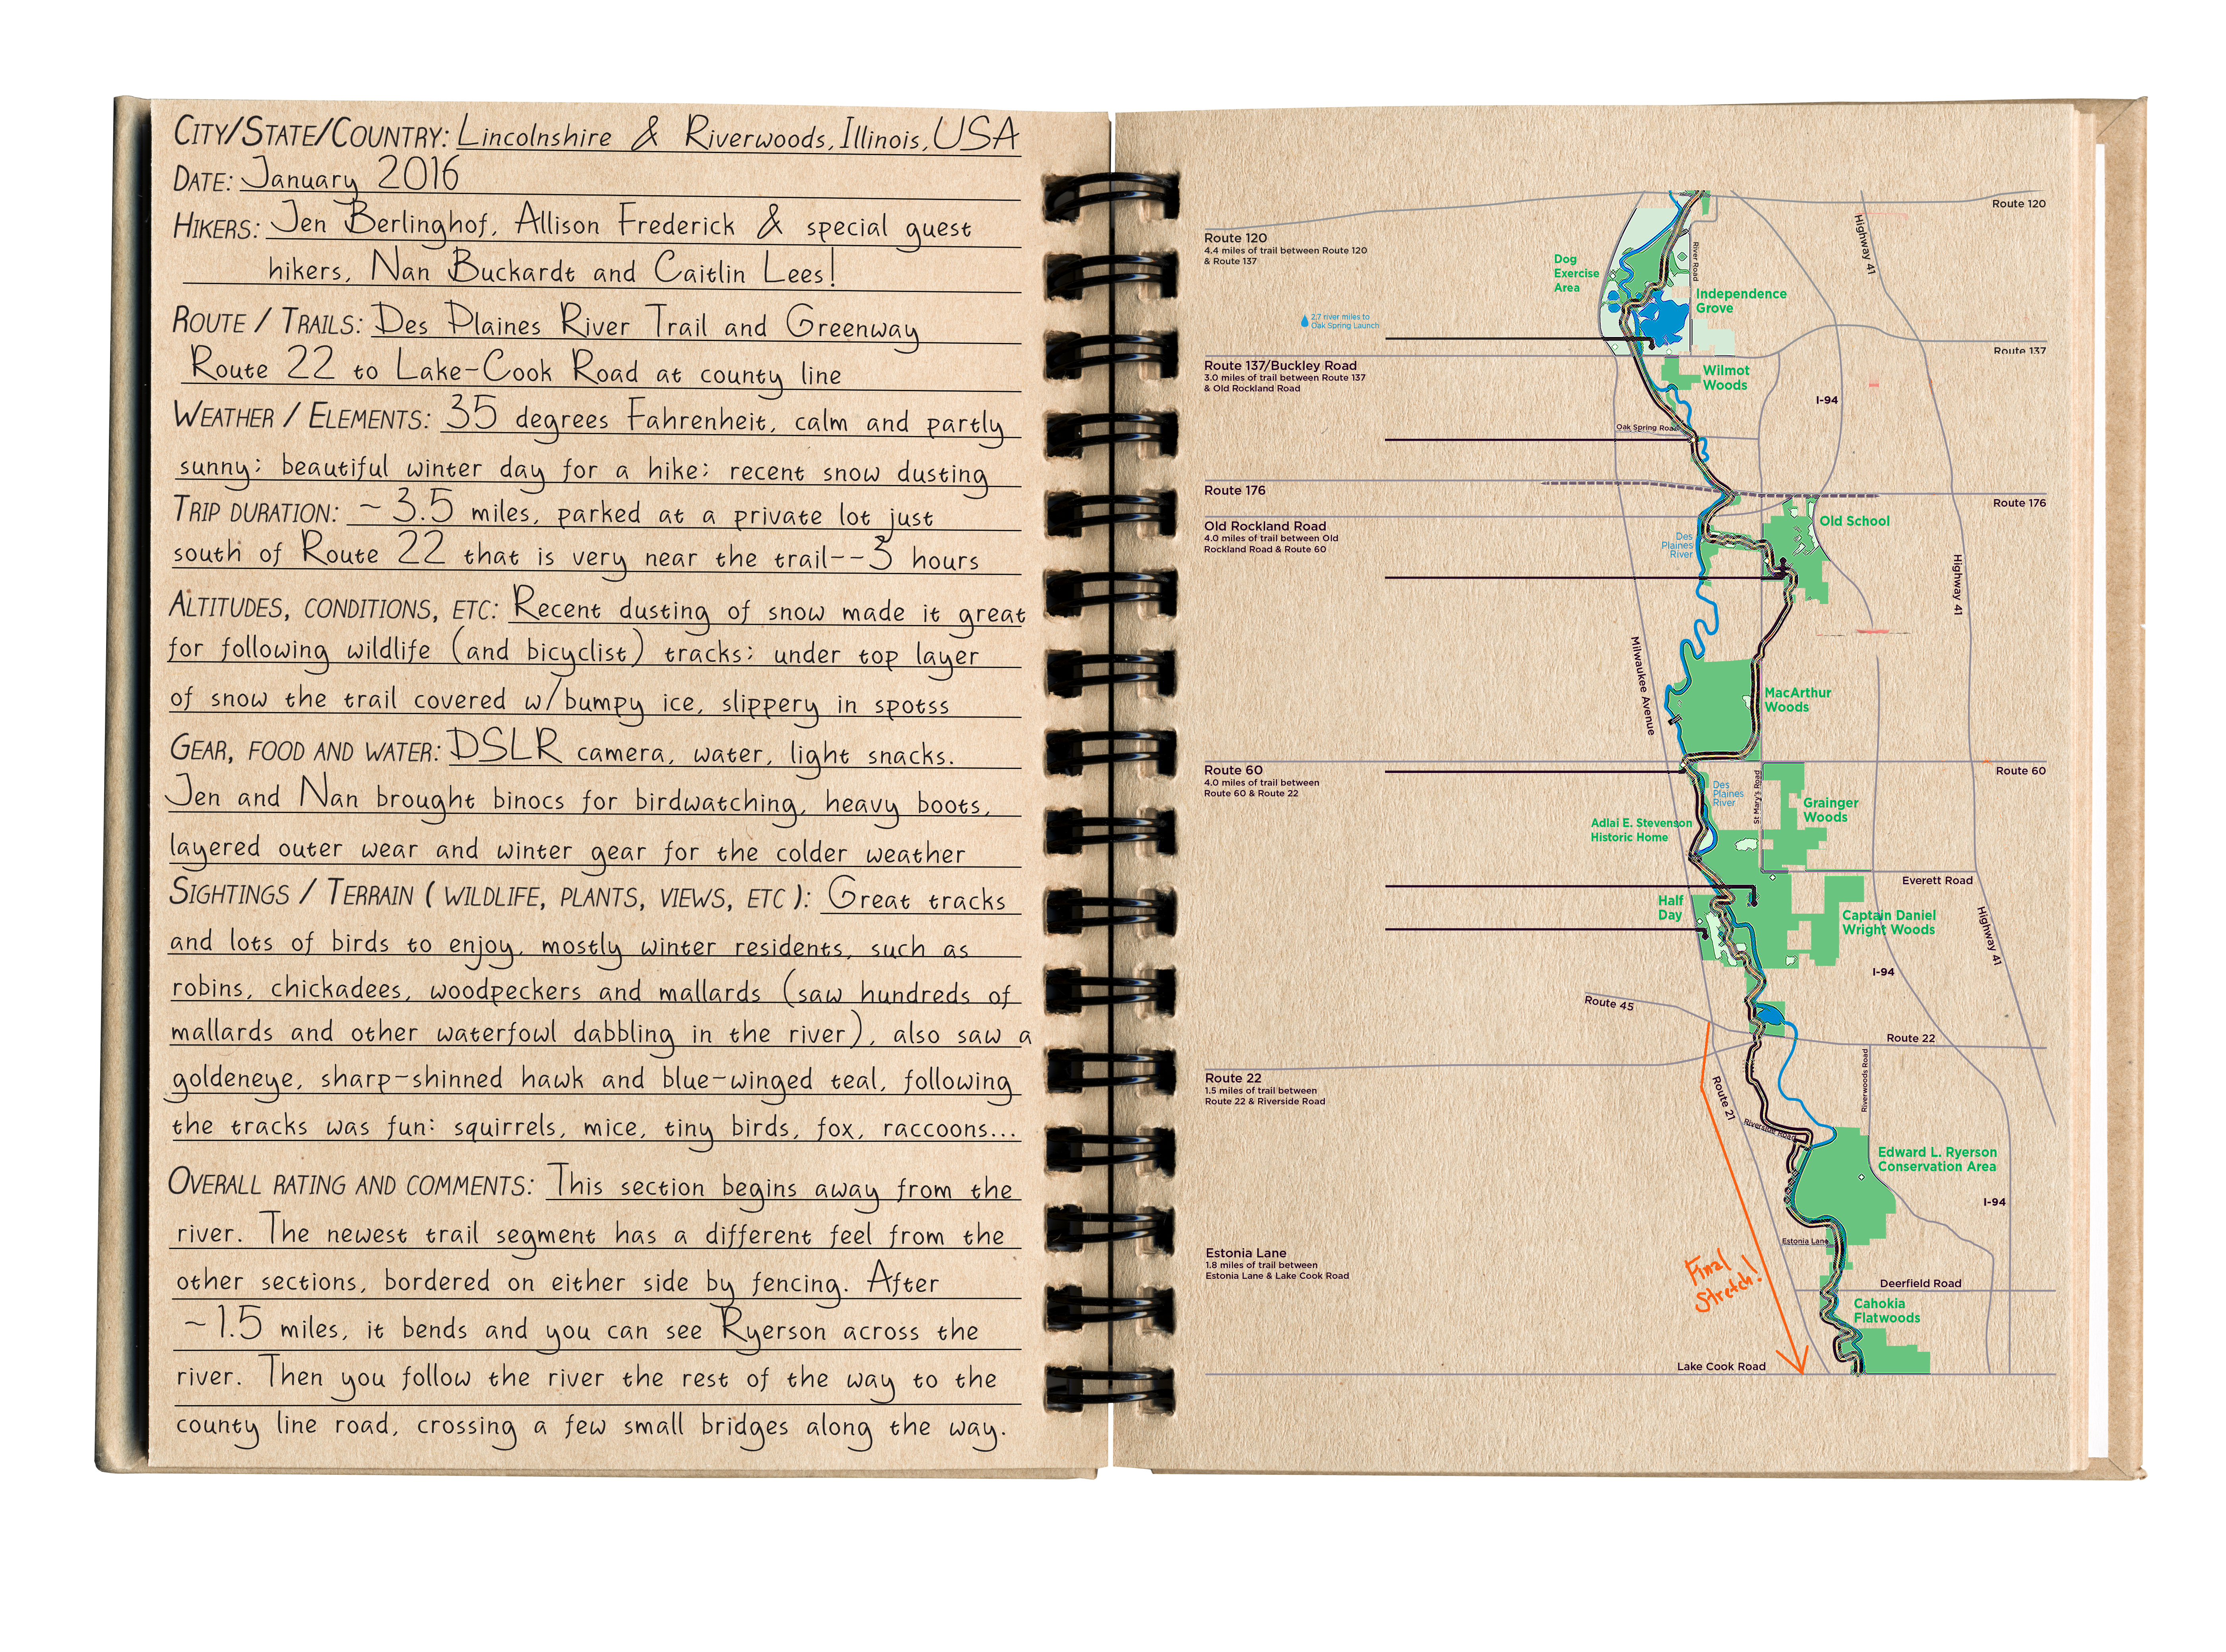 CITY/STATE/COUNTRY: Lincolnshire & Riverwoods, Illinois, USA
DATE: January 2016
HIKERS: Jen Berlinghof, Allison Frederick & special guest
hikers, Nan Buckardt and Caitlin Lees!
ROUTE / TRAILS: Des Plaines River Trail and Greenway
Route 22 to Lake-Cook Road at county line
WEATHER / ELEMENTS: 35 degrees Fahrenheit, calm and partly
sunny; beautiful winter day for a hike; recent snow dusting
TRIP DURATION: ~ 3.5 miles, parked at a private lot just
south of Route 22 that is very near the trail--3 hours
ALTITUDES, CONDITIONS, ETC: Recent dusting of snow made it great
for following wildlife (and bicyclist) tracks; under top layer
of snow the trail covered w/bumpy ice, slippery in spotss
GEAR, FOOD AND WATER: DSLR camera, water, light snacks.
Jen and Nan brought binocs for birdwatching, heavy boots,
layered outer wear and winter gear for the colder weather
SIGHTINGS / TERRAIN ( WILDLIFE, PLANTS, VIEWS, ETC ): Great tracks
and lots of birds to enjoy, mostly winter residents, such as
robins, chickadees, woodpeckers and mallards (saw hundreds of
mallards and other waterfowl dabbling in the river), also saw a
goldeneye, sharp-shinned hawk and blue-winged teal, following
the tracks was fun: squirrels, mice, tiny birds, fox, raccoons...
OVERALL RATING AND COMMENTS: This section begins away from the
river. The newest trail segment has a different feel from the
other sections, bordered on either side by fencing. After
~1.5 miles, it bends and you can see Ryerson across the
river. Then you follow the river the rest of the way to the
county line road, crossing a few small bridges along the way.
Route 120
Route 120
4.4 miles of trail between Route 120
& Route 137
Highway 41
River Road
Dog
Exercise
Area
Independence
Grove
2.7 river miles to
Oak Spring Launch
Route 137
Route 137/Buckley Road
3.0 miles of trail between Route 137
& Old Rockland Road
Wilmot
Woods
I-94
Oak Spring Road
Route 176
Route 176
Old Rockland Road
4.0 miles of trail between Old
Rockland Road & Route 60
Old School
Des
Plaines
River
Highway 41
Milwaukee Avenue
MacArthur
Woods
Route 60
4.0 miles of trail between
Route 60 & Route 22
Route 60
Des
Plaines
River
St Mary's Road
Grainger
Woods
Adlai E. Stevenson
Historic Home
Everett Road
Half
Day
Captain Daniel
Wright Woods
Highway 41
I-94
Route 45
Route 22
Route 22
1.5 miles of trail between
Route 22 & Riverside Road
Route 21
Riverwoods Road
Riverside Road
Edward L. Ryerson
Conservation Area
I-94
Estonia Lane
Estonia Lane
1.8 miles of trail between
Estonia Lane & Lake Cook Road
Final
Stretch!
Deerfield Road
Cahokia
Flatwoods
Lake Cook Road